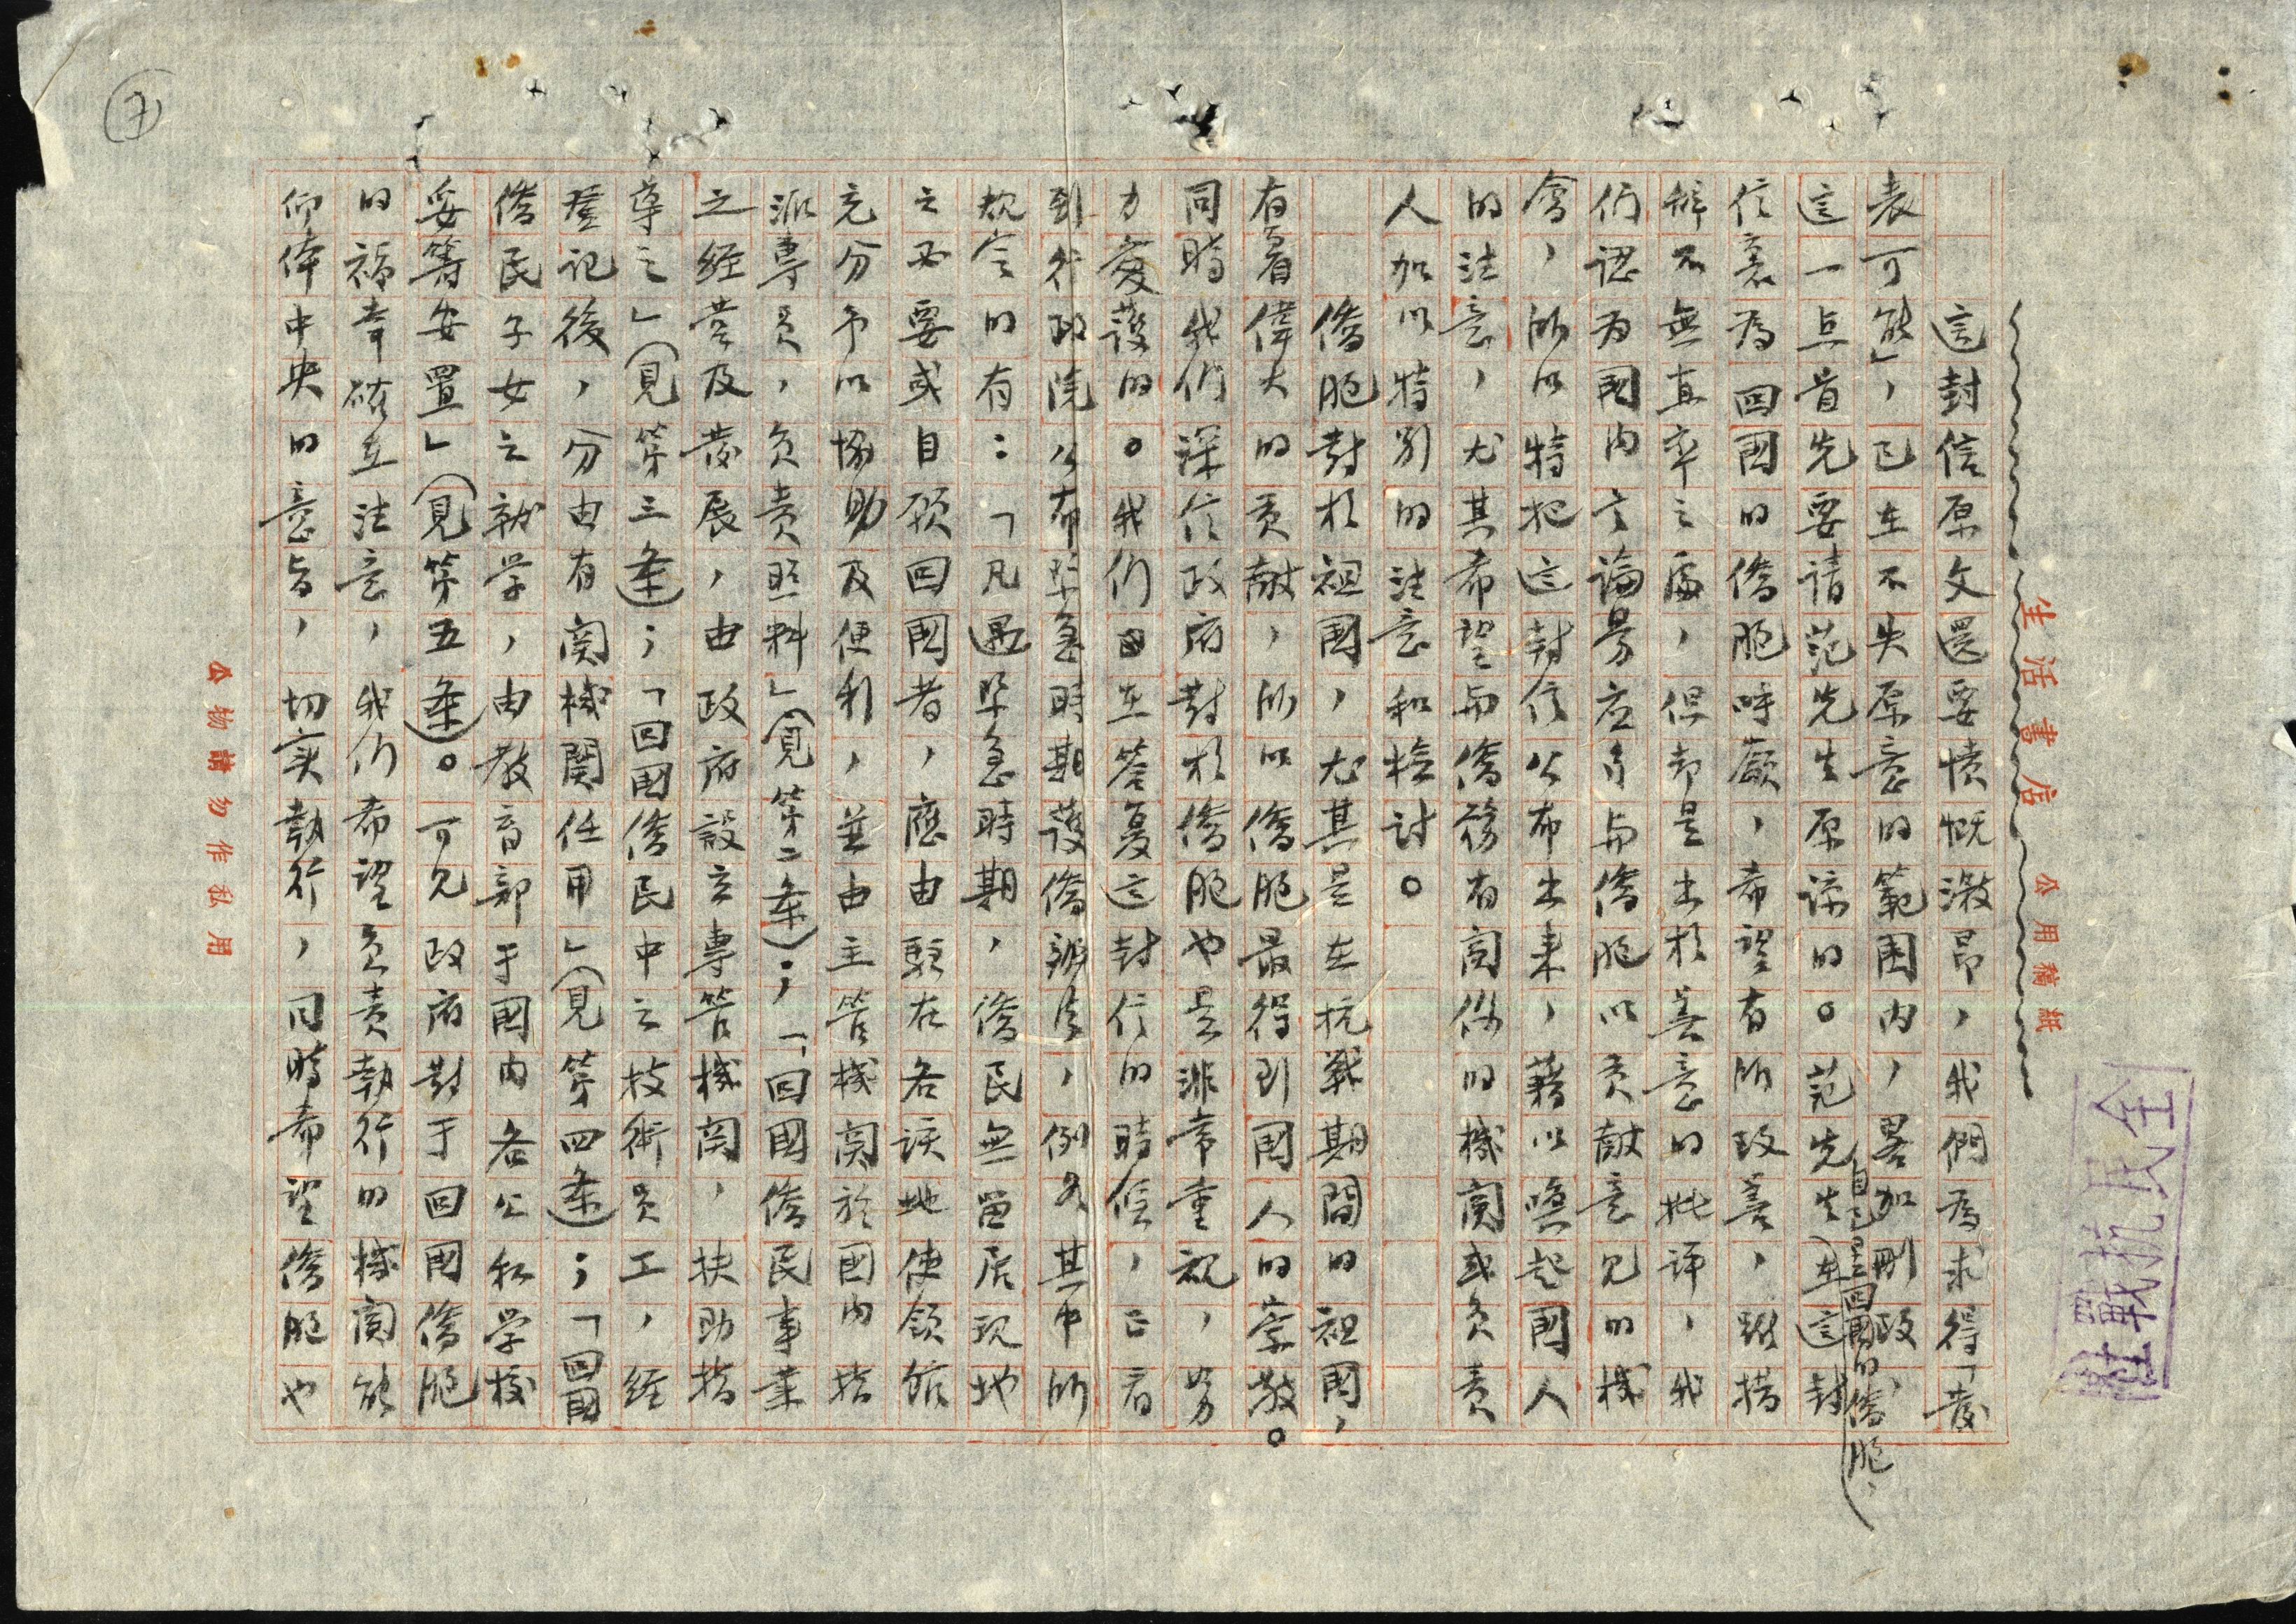 全民抗戰社
生活書店 公用稿紙
這封信原文還要憤慨激昂，我們為求得「發
表可能」，已在不失原意的範圍内，畧加刪改，
這一点首先要請范先生原諒的。范先生（自己是回國的僑胞，）在這封
信裏為回國的僑胞呼籲，希望有所改善，雖措
辭不無直率之處，但却是出於善意的批評，我
们認为國内言論界应予与僑胞以貢献意見的機
會，所以特把這封信公布出来，藉以喚起國人
的注意，尤其希望与僑務有関係的機関或负责
人加以特别的注意和檢討。
僑胞對於祖國，尤其是在抗戰期間的祖國，
有着偉大的贡献，所以僑胞最得到國人的崇敬。
同時我们深信政府對於僑胞也是非常重視，努
力爱護的。我们在答复這封信的時候，正看
到行政院公布緊急時期護僑辦法，例如其中所
規定的有：「凡遇緊急時期，僑民無留居現地
之必要或自願回國者，應由駐在各該地使領館
充分予以協助及便利，並由主管機関於國内指
派專員，负责照料」（見第二条）；「回國僑民事業
之經营及發展，由政府設立專管機関，扶助指
導之」（見第三条）；「回國僑民中之技術员工，經
登記後，分由有関機関任用」（見第四条）；「回國
僑民子女之就学，由教育部于國内各公私学校
妥籌安置」（見第五条）。可見政府對于回國僑胞
的福幸確立注意，我们希望负责執行的機関能
仰体中央的意旨，切实執行，同時希望僑胞也
公物請勿作私用
7